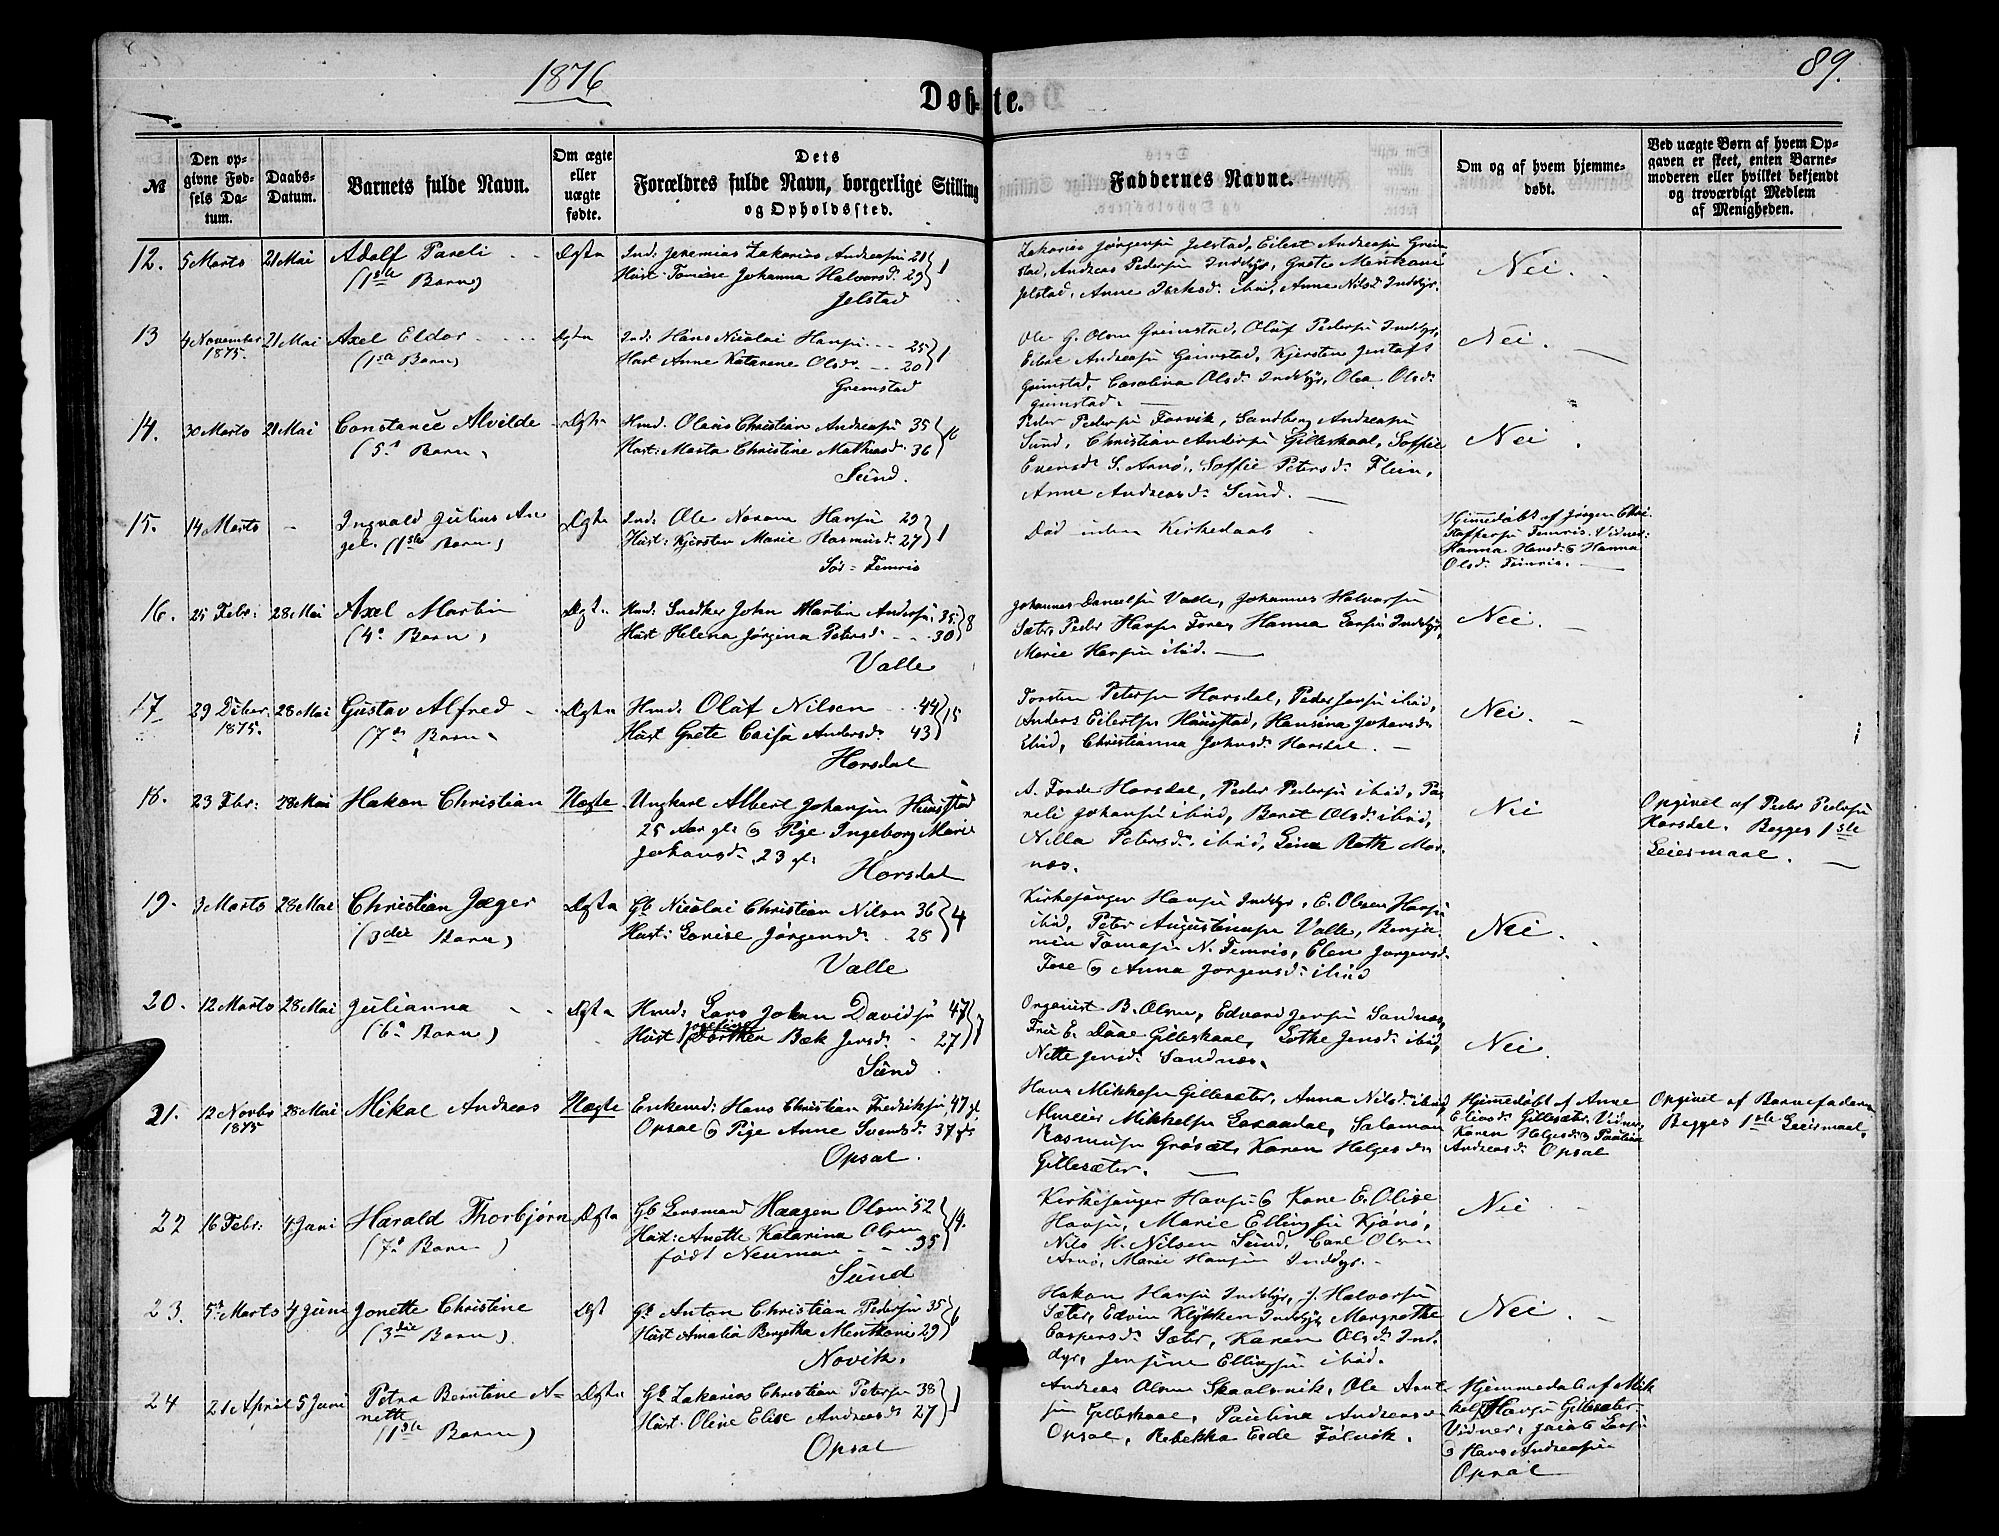 1876
89.
Døbte.
№
Den opgivne Fødsels Datum.
Daabs-Datum.
Barnets fulde Navn.
Om ægte eller uægte fødte.
Dets Forældres fulde Navn, borgerlige Stilling og Opholdssted.
Faddernes Navne.
Om og af hvem hjemmedøbt.
Ved uægte Børn af hvem Opgaven er skeet, enten Barnemoderen eller hvilket bekjendt og troværdigt Medlem af Menigheden.
12. 5 Marts 21 Mai Adolf Pareli
(1ste Barn)
Ægta
Ind: Jeremias Zakarias Andreasen 21
Hust: Johanna Halvorsd. 29 } 1
Jelstad
Zakarias Jørgensen Jelstad, Eilert Andreasen Grimstad, Andreas Pedersen Inddyr, Grete Mentzoni
Jelstad, Anne ibid, Anne Nilsd Inddyr.
Nei.
13 4 November 1875. 21 Mai Axel Eldor
(1ste Barn)
Ægta
Ind: Hans Nicolai Hansen 25
Hust Anne Katarene Olsd. 20 } 1
Gremstad
Ole G. Olsen Greimstad, Oluf Pedersen Inddyr,
Eilert Andreasen Grimstad, Kjersten
Grimstad, Carolina Olsd. Inddyr, Olea Olsd.
Grimstad.
Nei.
14. 30 Marts 21 Mai Constance Alvilde
(5te Barn)
Ægta
Hmd. Olaus Christian Andreasen 35
Hust: Marta Christine Mathiasd. 36
Sund.
Peder Pedersen Forvik, Sandberg Andreasen
Sund, Christian Andersen Gilleskaal, Soffie
Evensd. S. Arnø, Soffie Petersd. Flein,
Anne Andreasd. Sund.
Nei.
15. 14 Marts - Ingvald Julius An
gel. (1ste Barn)
Ægta
Ind: Ole Hansen 29
Hust: Kjersten Marie Rasmusd. 27 } 1
Sør-Femris
Død uden Kirkedaab
Hjemmedøbt af Jørgen Chri
stoffersen Femris. Vidner:
Hanna Hansd. & Hanna
Olsd. Femris.
16. 25 Febr: 28 Mai Axel Martin
(4de Barn)
Ægta
Hmd. Snedker John Martin Andersen 35
Hust Helena Jørgina Petersd. 30 } 8
Valle
Johannes Danielsen Valle, Johannes Halvorsen
Sæter, Peder Hansen Fore, Hanna Larsen Inddyr,
Marie Hansen ibid.
Nei.
17 29 Decbr: 1875. 28 Mai Gustav Alfred
(7de Barn)
Ægta
Hmd: Oluf Nilsen 44
Hust Grete Caisa Andersd. 43 } 15
Horsdal
Torsten Petersen Horsdal, Peder Jensen ibid,
Anders Eilertsen Hunstad, Hansina Johansd.
Ibid, Christianna Johnsd. Horsdal.
Nei.
18. 23 Fbr: 28 Mai Hakon Christian
Uægte
Ungkarl Albert Johansen Hunstad
25 Aar gl: & Pige Ingeborg Marie
Johansd. 23 gl.
Horsdal
A. Fonde Horsdal, Peder Pedersen ibid, Pa
reli Johansen ibid, Beret Olsd. ibid,
Nilla Petersd. ibid, Lina Roth Mor
næs.
Nei
Opgivet af Peder Pedersen
Horsdal. Begges 1ste
Leiermaal.
19. 3 Marts 28 Mai Christian Jæger
(3die Barn)
Ægta
Gb Nicolai Christian Nilsen 36
Hust: Lovise Jørgensd. 28 } 4
Valle
Kirkesanger Hansen Inddyr, E. Olsen Hansen
ibid, Peter Augustinusen Valle, Benja
min Tomasen N. Femris, Elen Jørgensd.
Fore & Anna Jørgensd. ibid
Nei.
20. 12 Marts 28 Mai Julianna
(6te Barn)
Ægta
Hmd: Lars Johan Davidsen 47
Hust Dorthea Bæk Jensd. 27 } 7
Sund
Organist B. Olsen, Edvard Jensen Sandnæs,
Fru E. Daae Gilleskaal, Lotke Jensd. ibid,
Nette Jensd. Sandnæs.
Nei.
21. 12 Novbr 1875 28 Mai Mikal Andreas
Uægte
Enkemd: Hans Christian Fredriksen 47 gl.
Opsal & Pige Anne Svensd. 37 gl.
Opsal.
Hans Mikkelsen Gillesæter, Anna Nilsd. ibid,
Mikkelsen Laxaadal, Salamon
Rasmusen Grøsæt, Karen Helgesd.
Gillesæter.
Hjemmedøbt af Anne
Eliasd. Gillesæter, Vidner,
Karen Helgesd. & Paulina
Andreasd. Opsal
Opgivet af Barnefaderen
Begges 1ste Leiermaal.
22 16 Febr: 4 Juni Harald Thorbjørn
(7de Barn)
Ægta
Gb Lensmand Haagen Olsen 52
Hust: Anette Katarina Olsen
født Neuman 35 } 14.
Sund
Kirkesanger Hansen & Kone E. Olise
Hansen, Marie Ellingsen Kjønø,
Nils H. Nilsen Sund, Carl Olsen
Arnø, Marie Hansen Inddyr.
Nei
23. 5 Marts 4 Juni Jonette Christine
(3die Barn)
Ægt
Gb Anton Christian Pedersen 35
Hust Amalia Bergitha Mentzoni 29 } 6
Novik.
Hakon Hansen Inddyr, J. Halvorsen
Sæter, Edvin Klykken Inddyr, Margrethe
Caspersd. Sæter, Karen Olsd. Ind
dyr, Jensine Ellingsen ibid.
Nei.
24 21 April 5 Juni Petra Berntine A
nette
(1ste Barn)
Ægta
Gb Zakarias Christian Petersen 38
Hust: Oline Elise Andreasd. 27 } 1
Opsal
Andreas Olsen Skaalsvik, Ole Arnt
sen Gilleskaal, Paulina Andreasd.
Opsal, Rebekka Eide Følvik.
Hjemmedøbt af Mik
kel Hansen Gillesæter
Vidner, Jacob Larsen
& Hans Andreasen
Opsal